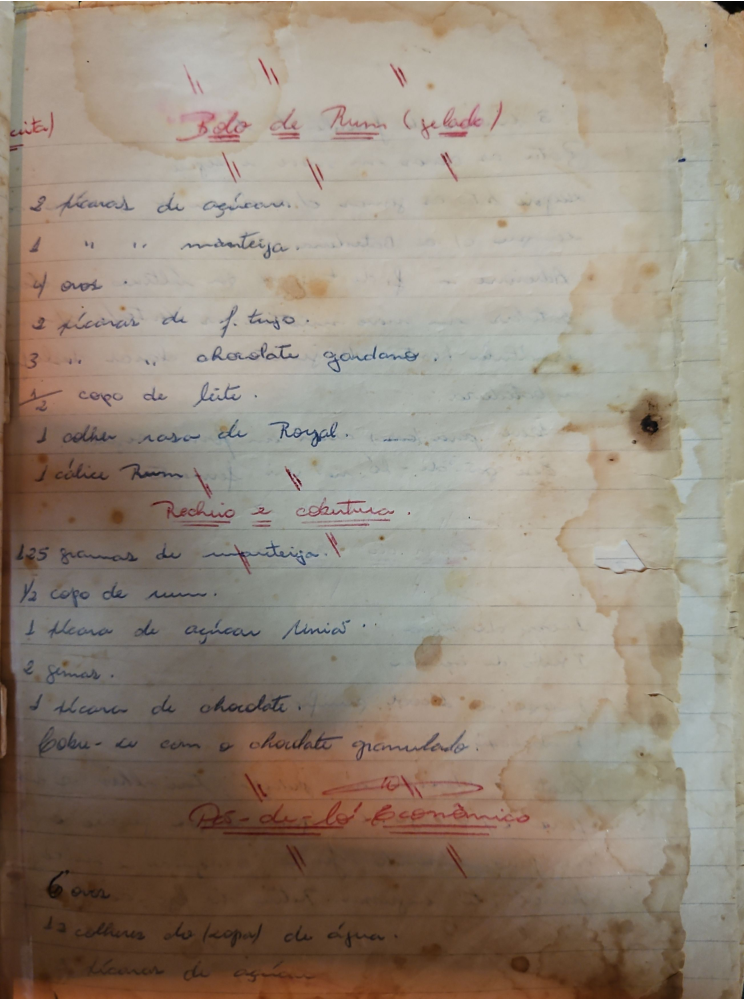 Bolo de Rum (gelado)
2 xícaras de açúcar.
1 " " manteiga.
4 ovos.
2 xícaras de f. trigo.
3 " " chocolate
1/2 copo de leite.
1 colher rasa de Royal.
1 cálice Rum
Recheio e cobertura.
125 gramas de manteiga.
1/2 copo de rum.
1 xícara de açúcar União
2 gemas.
1 xícara de chocolate.
Cobre-se com o chocolate granulado.
Pós-de-ló Econômico
6 ovos
12 colheres de (sopa) de água.
xícaras de açúcar